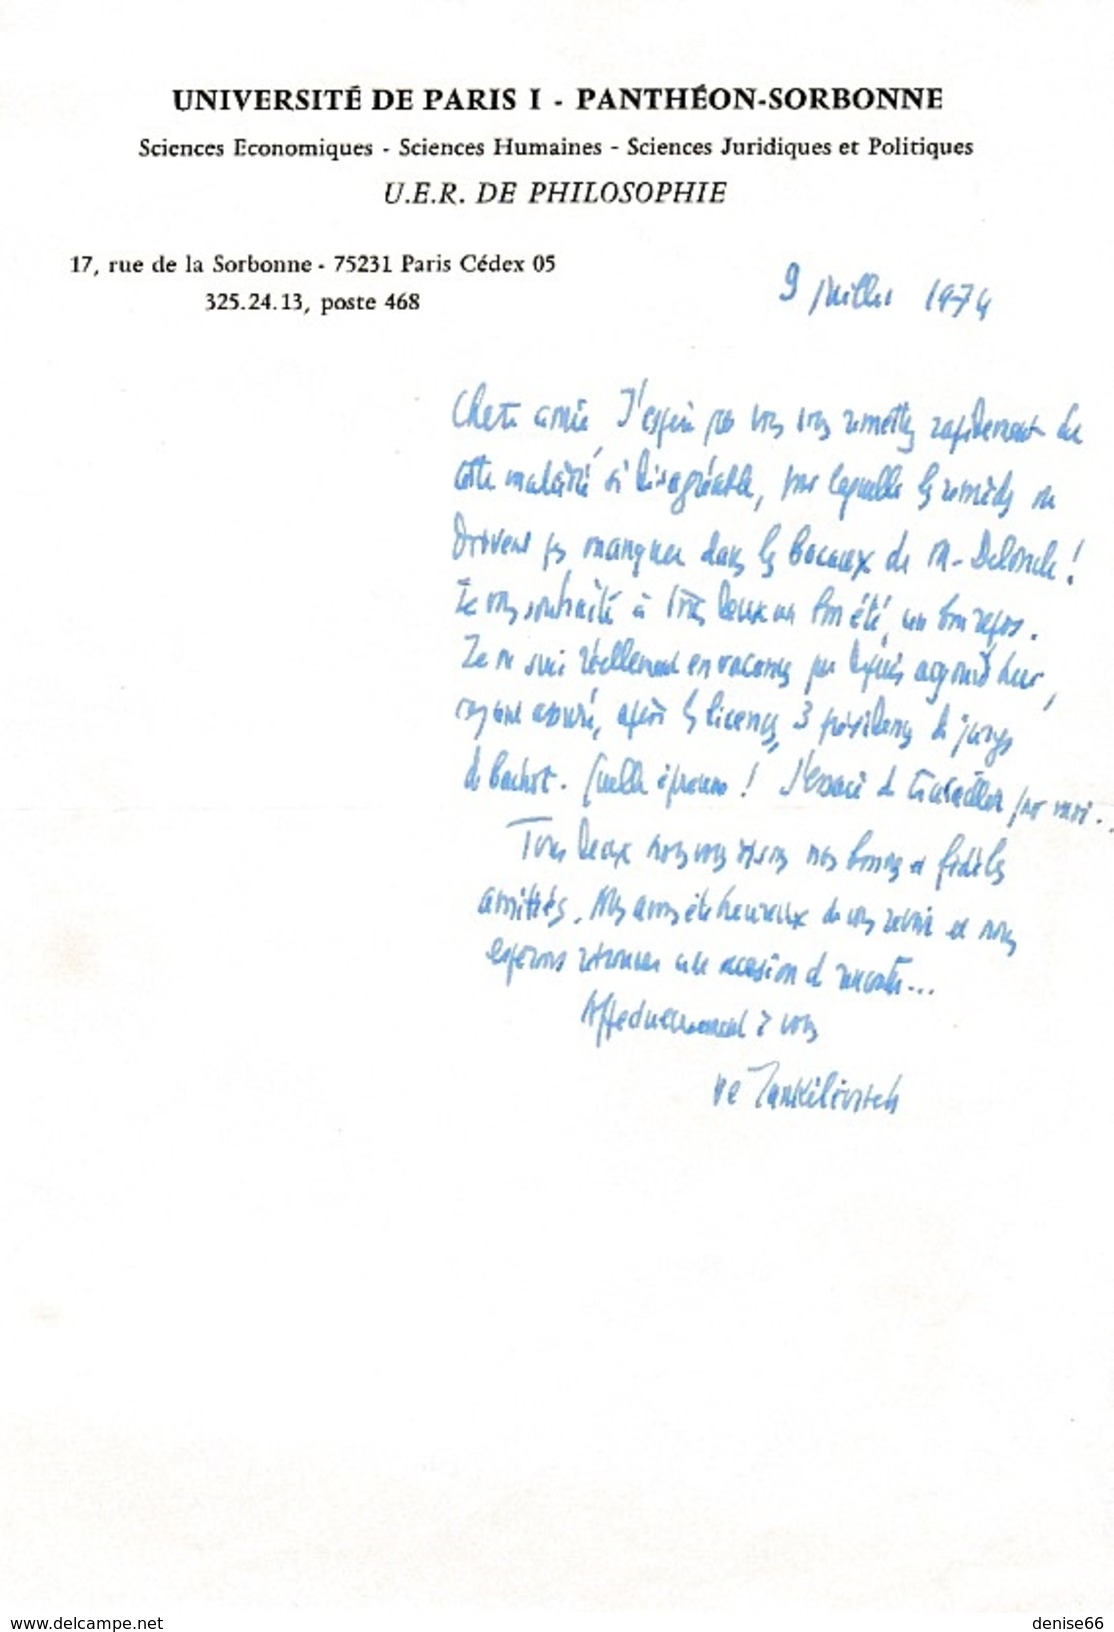 UNIVERSITÉ DE PARIS I - PANTHÉON-SORBONNE
Sciences Economiques - Sciences Humaines - Sciences Juridiques et Politiques
U.E.R. DE PHILOSOPHIE
17, rue de la Sorbonne - 75231 Paris Cédex 05
325.24.13, poste 468
9 juillet 1974
Chère amie, J'espère que vous vous remettez rapidement de
cette maladie si désagréable, pour laquelle les remèdes ne
doivent pas manquer dans les bocaux de M.
Je vous souhaite à tous deux un bon été, un bon repos.
Je ne suis réellement en vacances que depuis aujourd'hui,
ayant assuré, après les licences, 3 présidences de jurys
de bachot. Quelle épreuve ! J'essaie de travailler pour moi..
Tous deux nous vous disons nos bonnes et fidèles
amitiés. Nous avons été heureux de vous revoir et nous
espérons retrouver une occasion de rencontre...
Affectueusement à vous
Jankélévitch
www.delcampe.net
denise66